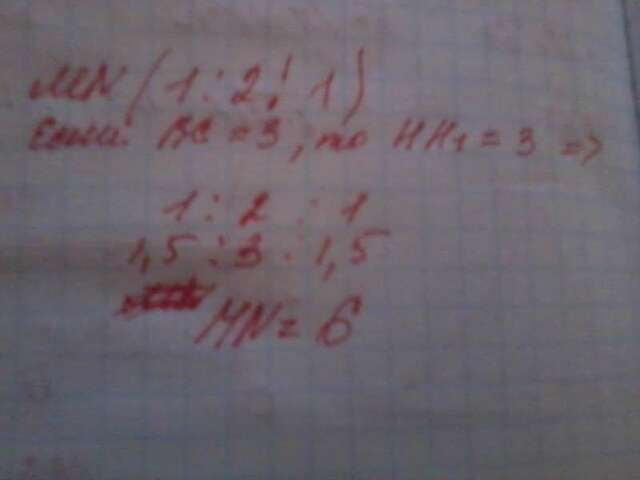 MN (1:2:1)
Если BC = 3, то HH₁ = 3 =>
1 : 2 : 1
1,5 : 3 : 1,5
MN = 6